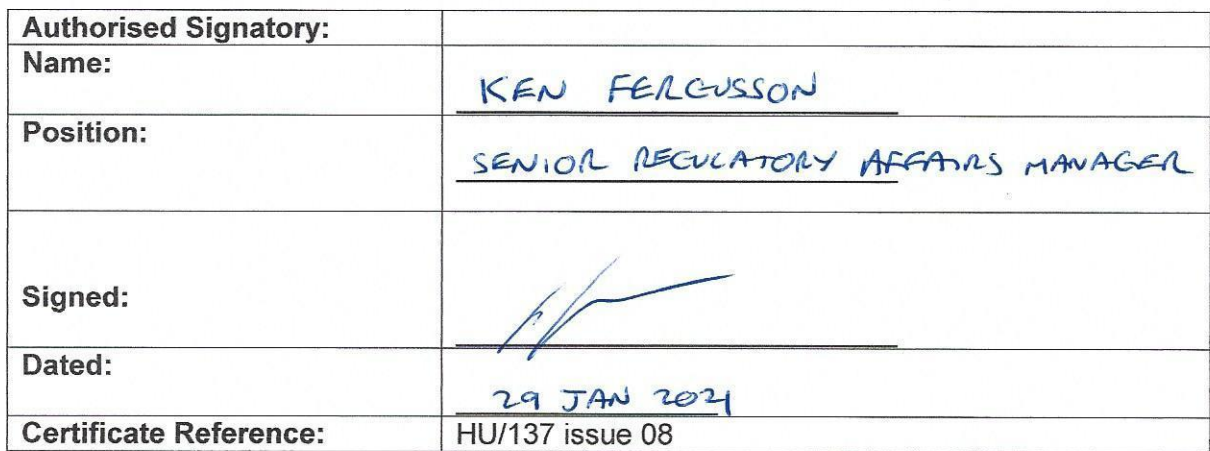 Authorised Signatory:
Name:
KEN FERGUSSON
Position:
SENIOR REGULATORY AFFAIRS MANAGER
Signed:
Dated:
29 JAN 2021
Certificate Reference: HU/137 issue 08